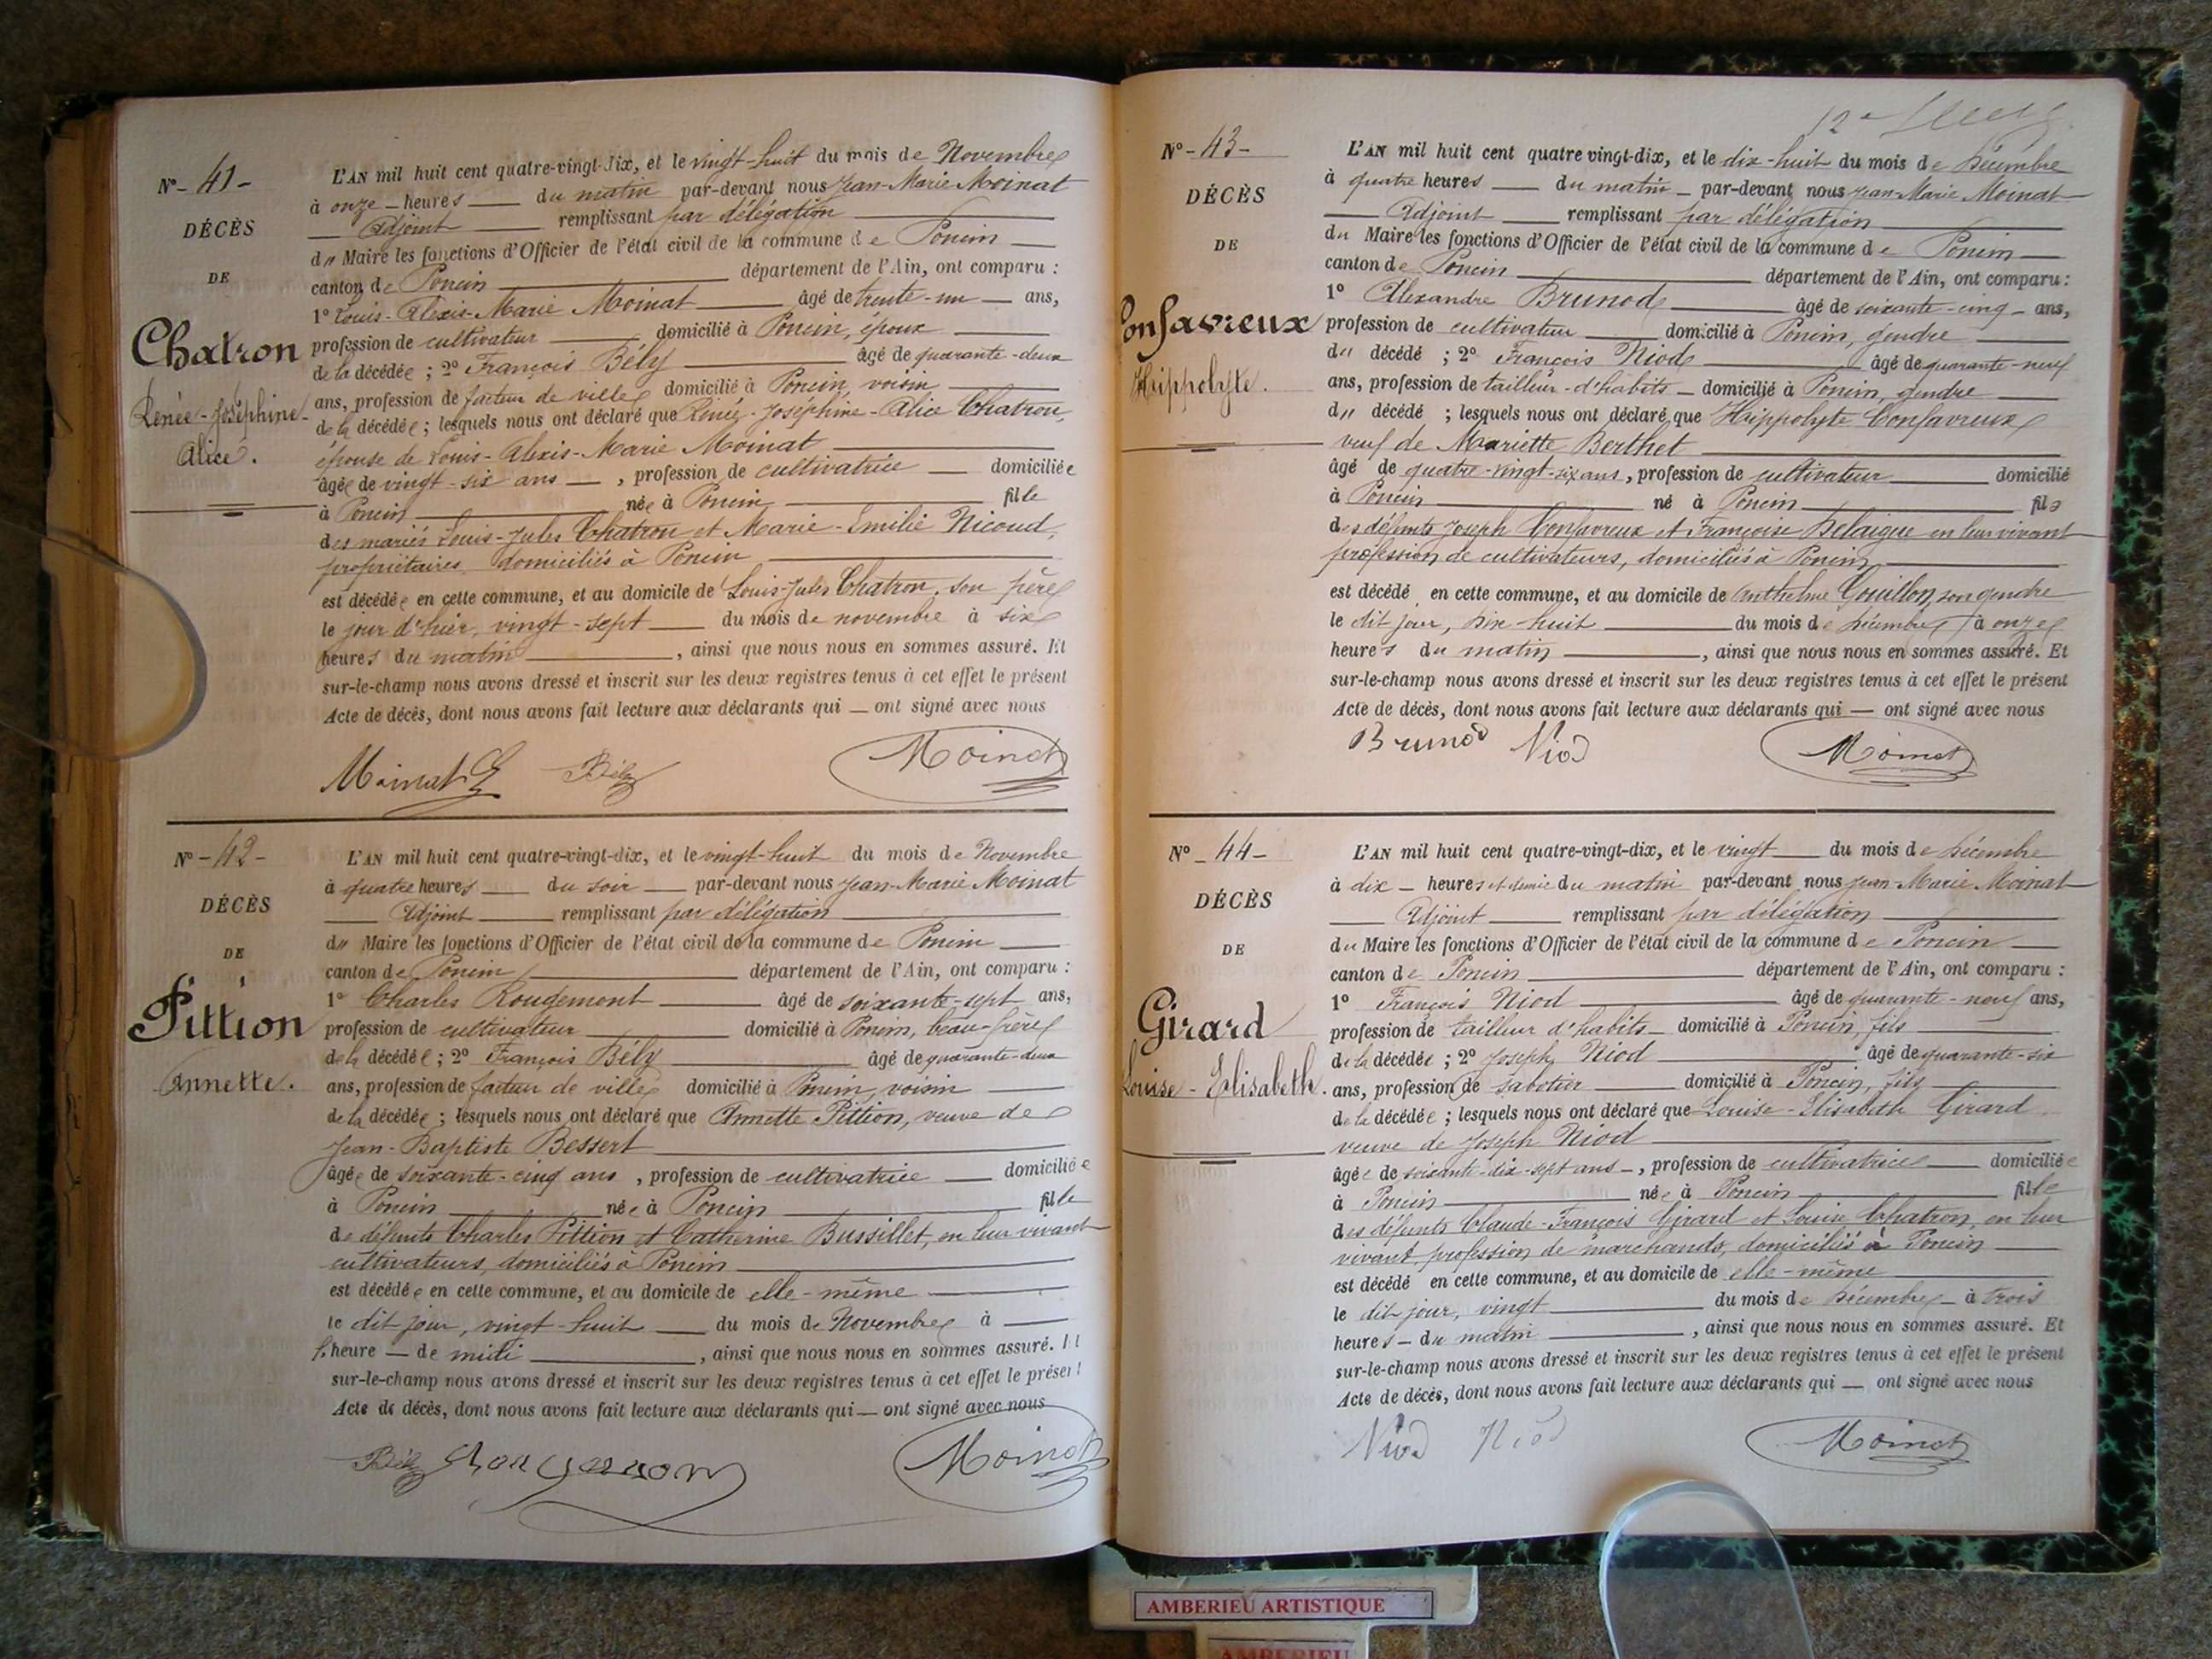 N° - 41 -
DÉCÈS
DE
Chatron
Renée-Joséphine-
Alice.
L'AN mil huit cent quatre-vingt-dix, et le vingt-huit du mois de Novembre
à onze heures du matin par-devant nous Jean-Marie Moinat
Adjoint remplissant par délégation
du Maire les fonctions d'Officier de l'état civil de la commune de Poncin
canton de Poncin département de l'Ain, ont comparu :
1° Louis-Alexis-Marie Moinat âgé de trente-un ans,
profession de cultivateur domicilié à Poncin, époux
de la décédée ; 2° François Bély âgé de quarante-deux
ans, profession de facteur de ville domicilié à Poncin, voisin
de la décédée ; lesquels nous ont déclaré que Renée-Joséphine-Alice Chatron,
épouse de Louis-Alexis-Marie Moinat
âgée de vingt-six ans, profession de cultivatrice domiciliée
à Poncin née à Poncin fille
des mariés Louis-Jules Chatron et Marie-Emilie Nicoud,
propriétaires domiciliés à Poncin
est décédée en cette commune, et au domicile de Louis-Jules Chatron, son père
le jour d'hier, vingt-sept du mois de novembre à six
heures du matin, ainsi que nous nous en sommes assuré. Et
sur-le-champ nous avons dressé et inscrit sur les deux registres tenus à cet effet le présent
Acte de décès, dont nous avons fait lecture aux déclarants qui — ont signé avec nous
Moinat L Bély Moinat
N° - 42 -
DÉCÈS
DE
Pittion
Annette.
L'AN mil huit cent quatre-vingt-dix, et le vingt-huit du mois de Novembre
à quatre heures du soir par-devant nous Jean-Marie Moinat
Adjoint remplissant par délégation
du Maire les fonctions d'Officier de l'état civil de la commune de Poncin
canton de Poncin département de l'Ain, ont comparu :
1° Charles Rougemont âgé de soixante-sept ans,
profession de cultivateur domicilié à Poncin, beau-frère
de la décédée ; 2° François Bély âgé de quarante-deux
ans, profession de facteur de ville domicilié à Poncin, voisin
de la décédée ; lesquels nous ont déclaré que Annette Pittion, veuve de
Jean-Baptiste Bessert
âgée de soixante-cinq ans, profession de cultivatrice domiciliée
à Poncin née à Poncin fille
de défunts Charles Pittion et Catherine Bussillet, en leur vivant
cultivateurs, domiciliés à Poncin
est décédée en cette commune, et au domicile de elle-même
le dit jour, vingt-huit du mois de Novembre à
l'heure — de midi, ainsi que nous nous en sommes assuré. Et
sur-le-champ nous avons dressé et inscrit sur les deux registres tenus à cet effet le présent
Acte de décès, dont nous avons fait lecture aux déclarants qui — ont signé avec nous
Bély Moinat
N° - 43 -
DÉCÈS
DE
Confavreux
Hippolyte.
L'AN mil huit cent quatre vingt-dix, et le dix-huit du mois de Décembre
à quatre heures du matin par-devant nous Jean-Marie Moinat
Adjoint remplissant par délégation
du Maire les fonctions d'Officier de l'état civil de la commune de Poncin
canton de Poncin département de l'Ain, ont comparu :
1° Alexandre Brunod âgé de soixante-cinq ans,
profession de cultivateur domicilié à Poncin, gendre
du décédé ; 2° François Niod âgé de quarante-neuf
ans, profession de tailleur-d'habits domicilié à Poncin, gendre
du décédé ; lesquels nous ont déclaré que Hippolyte Confavreux
veuf de Mariette Berthet
âgé de quatre-vingt-six ans, profession de cultivateur domicilié
à Poncin né à Poncin fils
des défunts Joseph Confavreux et Françoise Delaigue en leur vivant
profession de cultivateurs, domiciliés à Poncin
est décédé en cette commune, et au domicile de Anthelme Gouillon, son gendre
le dit jour, dix-huit du mois de Décembre à onze
heures du matin, ainsi que nous nous en sommes assuré. Et
sur-le-champ nous avons dressé et inscrit sur les deux registres tenus à cet effet le présent
Acte de décès, dont nous avons fait lecture aux déclarants qui — ont signé avec nous
Brunod Niod Moinat
N° - 44 -
DÉCÈS
DE
Girard
Louise-Elisabeth.
L'AN mil huit cent quatre-vingt-dix, et le vingt du mois de Décembre
à dix heures et demie du matin par-devant nous Jean-Marie Moinat
Adjoint remplissant par délégation
du Maire les fonctions d'Officier de l'état civil de la commune de Poncin
canton de Poncin département de l'Ain, ont comparu :
1° François Niod âgé de quarante-neuf ans,
profession de tailleur d'habits domicilié à Poncin, fils
de la décédée ; 2° Joseph Niod âgé de quarante-six
ans, profession de sabotier domicilié à Poncin, fils
de la décédée ; lesquels nous ont déclaré que Louise-Elisabeth Girard
veuve de Joseph Niod
âgée de soixante-dix-sept ans, profession de cultivatrice domiciliée
à Poncin née à Poncin fille
des défunts Claude-François Girard et Louise Chatron, en leur
vivant profession de marchands, domiciliés à Poncin
est décédé en cette commune, et au domicile de elle-même
le dit jour, vingt du mois de Décembre à trois
heures du matin, ainsi que nous nous en sommes assuré. Et
sur-le-champ nous avons dressé et inscrit sur les deux registres tenus à cet effet le présent
Acte de décès, dont nous avons fait lecture aux déclarants qui — ont signé avec nous
Niod Niod Moinat
AMBERIEU ARTISTIQUE
AMBERIEU